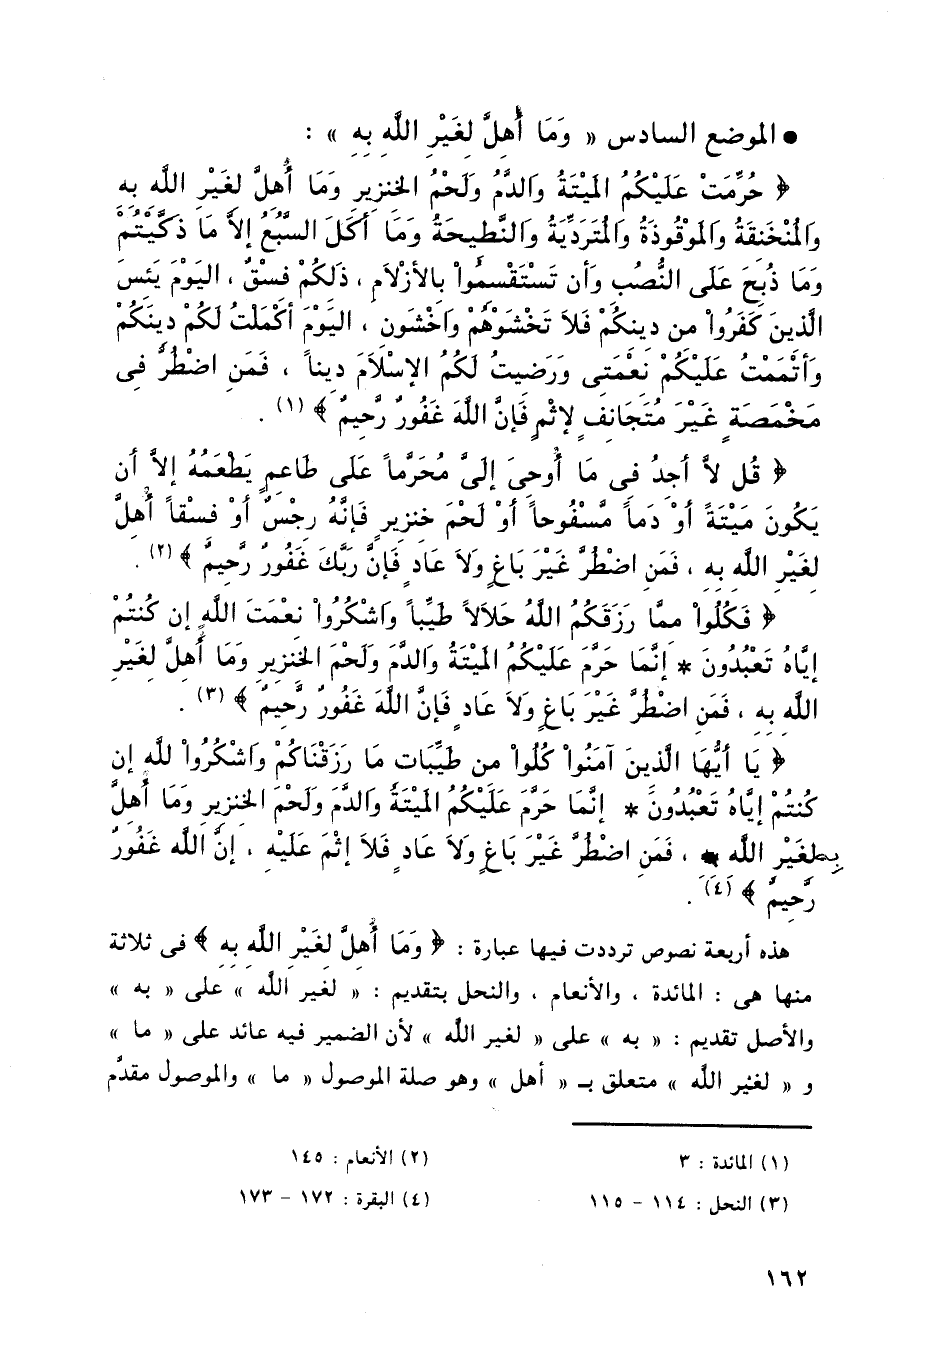 ● الموضع السادس « وَمَا أُهِلَّ لِغَيْرِ اللَّهِ بِهِ » :
﴿ حُرِّمَتْ عَلَيْكُمُ المَيْتَةُ وَالدَّمُ وَلَحْمُ الخِنزِيرِ وَمَا أُهِلَّ لِغَيْرِ اللَّهِ بِهِ
وَالمُنْخَنِقَةُ وَالمَوْقُوذَةُ وَالمُتَرَدِّيَةُ وَالنَّطِيحَةُ وَمَا أَكَلَ السَّبُعُ إلاَّ مَا ذَكَّيْتُمْ
وَمَا ذُبِحَ عَلَى النُّصُبِ وَأَن تَسْتَقْسِمُواْ بِالأَزْلاَمِ ، ذَلِكُمْ فِسْقٌ ، اليَوْمَ يَئِسَ
الَّذِينَ كَفَرُواْ مِن دِينِكُمْ فَلاَ تَخْشَوْهُمْ وَاخْشَونِ ، اليَوْمَ أَكْمَلْتُ لَكُمْ دِينَكُمْ
وَأَتْمَمْتُ عَلَيْكُمْ نِعْمَتِى وَرَضِيتُ لَكُمُ الإِسْلاَمَ دِيناً ، فَمَنِ اضْطُرَّ فِى
مَخْمَصَةٍ غَيْرَ مُتَجَانِفٍ لإِثْمٍ فَإِنَّ اللَّهَ غَفُورٌ رَّحِيمٌ ﴾ (١) .
﴿ قُل لاَّ أَجِدُ فِى مَا أُوحِىَ إِلَىَّ مُحَرَّماً عَلَى طَاعِمٍ يَطْعَمُهُ إِلاَّ أَن
يَكُونَ مَيْتَةً أَوْ دَماً مَّسْفُوحاً أَوْ لَحْمَ خِنزِيرٍ فَإِنَّهُ رِجْسٌ أَوْ فِسْقاً أُهِلَّ
لِغَيْرِ اللَّهِ بِهِ ، فَمَنِ اضْطُرَّ غَيْرَ بَاغٍ وَلاَ عَادٍ فَإِنَّ رَبَّكَ غَفُورٌ رَّحِيمٌ ﴾ (٢) .
﴿ فَكُلُواْ مِمَّا رَزَقَكُمُ اللَّهُ حَلاَلاً طَيِّباً وَاشْكُرُواْ نِعْمَتَ اللَّهِ إِن كُنتُمْ
إِيَّاهُ تَعْبُدُونَ * إِنَّمَا حَرَّمَ عَلَيْكُمُ المَيْتَةَ وَالدَّمَ وَلَحْمَ الخِنزِيرِ وَمَا أُهِلَّ لِغَيْرِ
اللَّهِ بِهِ ، فَمَنِ اضْطُرَّ غَيْرَ بَاغٍ وَلاَ عَادٍ فَإِنَّ اللَّهَ غَفُورٌ رَّحِيمٌ ﴾ (٣) .
﴿ يَا أَيُّهَا الَّذِينَ آمَنُواْ كُلُواْ مِن طَيِّبَاتِ مَا رَزَقْنَاكُمْ وَاشْكُرُواْ لِلَّهِ إِن
كُنتُمْ إِيَّاهُ تَعْبُدُونَ * إِنَّمَا حَرَّمَ عَلَيْكُمُ المَيْتَةَ وَالدَّمَ وَلَحْمَ الخِنزِيرِ وَمَا أُهِلَّ
بِهِ لِغَيْرِ اللَّهِ ، فَمَنِ اضْطُرَّ غَيْرَ بَاغٍ وَلاَ عَادٍ فَلاَ إِثْمَ عَلَيْهِ ، إِنَّ اللَّهَ غَفُورٌ
رَّحِيمٌ ﴾ (٤) .
هذه أربعة نصوص ترددت فيها عبارة : ﴿ وَمَا أُهِلَّ لِغَيْرِ اللَّهِ بِهِ ﴾ فى ثلاثة
منها هى : المائدة ، والأنعام ، والنحل بتقديم : « لغير اللَّه » على « به »
والأصل تقديم : « به » على « لغير اللَّه » لأن الضمير فيه عائد على « ما »
و « لغير اللَّه » متعلق بـ « أهل » وهو صلة الموصول « ما » والموصول مقدَّم
(١) المائدة : ٣
(٢) الأنعام : ١٤٥
(٣) النحل : ١١٤ – ١١٥
(٤) البقرة : ١٧٢ – ١٧٣
١٦٢